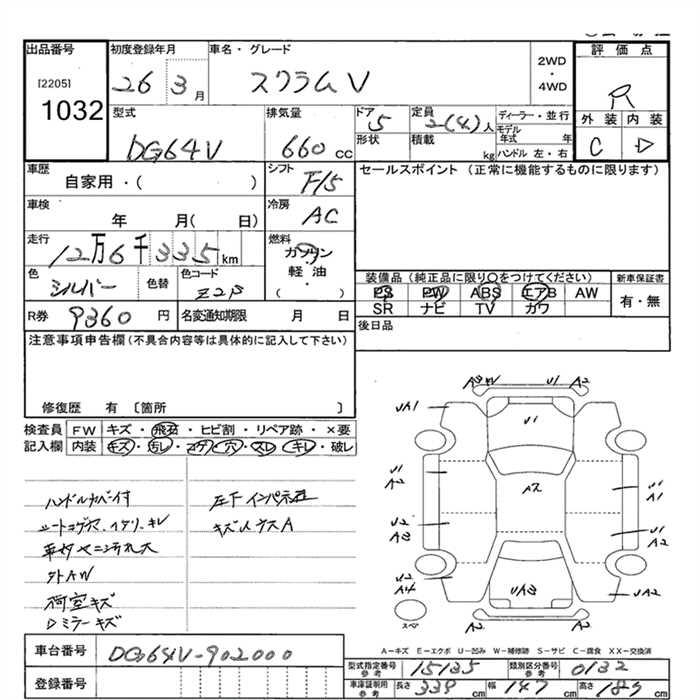 出品番号
[2205]
1032
初度登録年月
26 3月
車名・グレード
スクラムV
2WD
・
4WD
評価点
R
外装 内装
C D
型式
DG64V
排気量
660cc
ドア
5
形状
定員
2(4)人
積載
kg
ディーラー・並行
モデル年式 年
ハンドル 左・右
車歴
自家用・( )
シフト
F/5
セールスポイント (正常に機能するものに限ります)
車検
年 月( 日)
冷房
AC
走行
12万6千335km
燃料
ガソリン
・
軽油
・
( )
色
シルバー
色替
色コード
Z2S
装備品 (純正品に限り○をつけてください)
PS PW ABS エアB AW
SR ナビ TV カワ
新車保証書
有・無
R券 9360円
名変通知期限 月 日
後日品
注意事項申告欄 (不具合内容等は具体的に記入して下さい)
修復歴 有 〔箇所 〕
検査員
記入欄
FW キズ・飛石・ヒビ割・リペア跡・×要
内装 キズ・汚レ・コゲ・穴・スレ・キレ・破レ
ハンドルカバー付
シートコゲ穴、ヘタリ、キレ
外AW
荷室キズ
Dミラーキズ
A3 W U1 A2
UA1
U1
U1
A2
A2
U1
A1
U2
A3
U1
A2
U2
A4
UA3
UA2
スペア
A2 A2
A-キズ E-エクボ U-凹み W-補修跡 S-サビ C-腐食 XX-交換済
車台番号
DG64V-902000
登録番号
型式指定番号
参考
15135
類別区分番号
参考
0132
車庫証明用
参考
長さ 339cm
幅 147cm
高さ 189cm